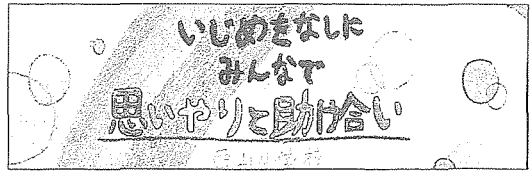 いじめをなしに
みんなで
思いやりと助け合い